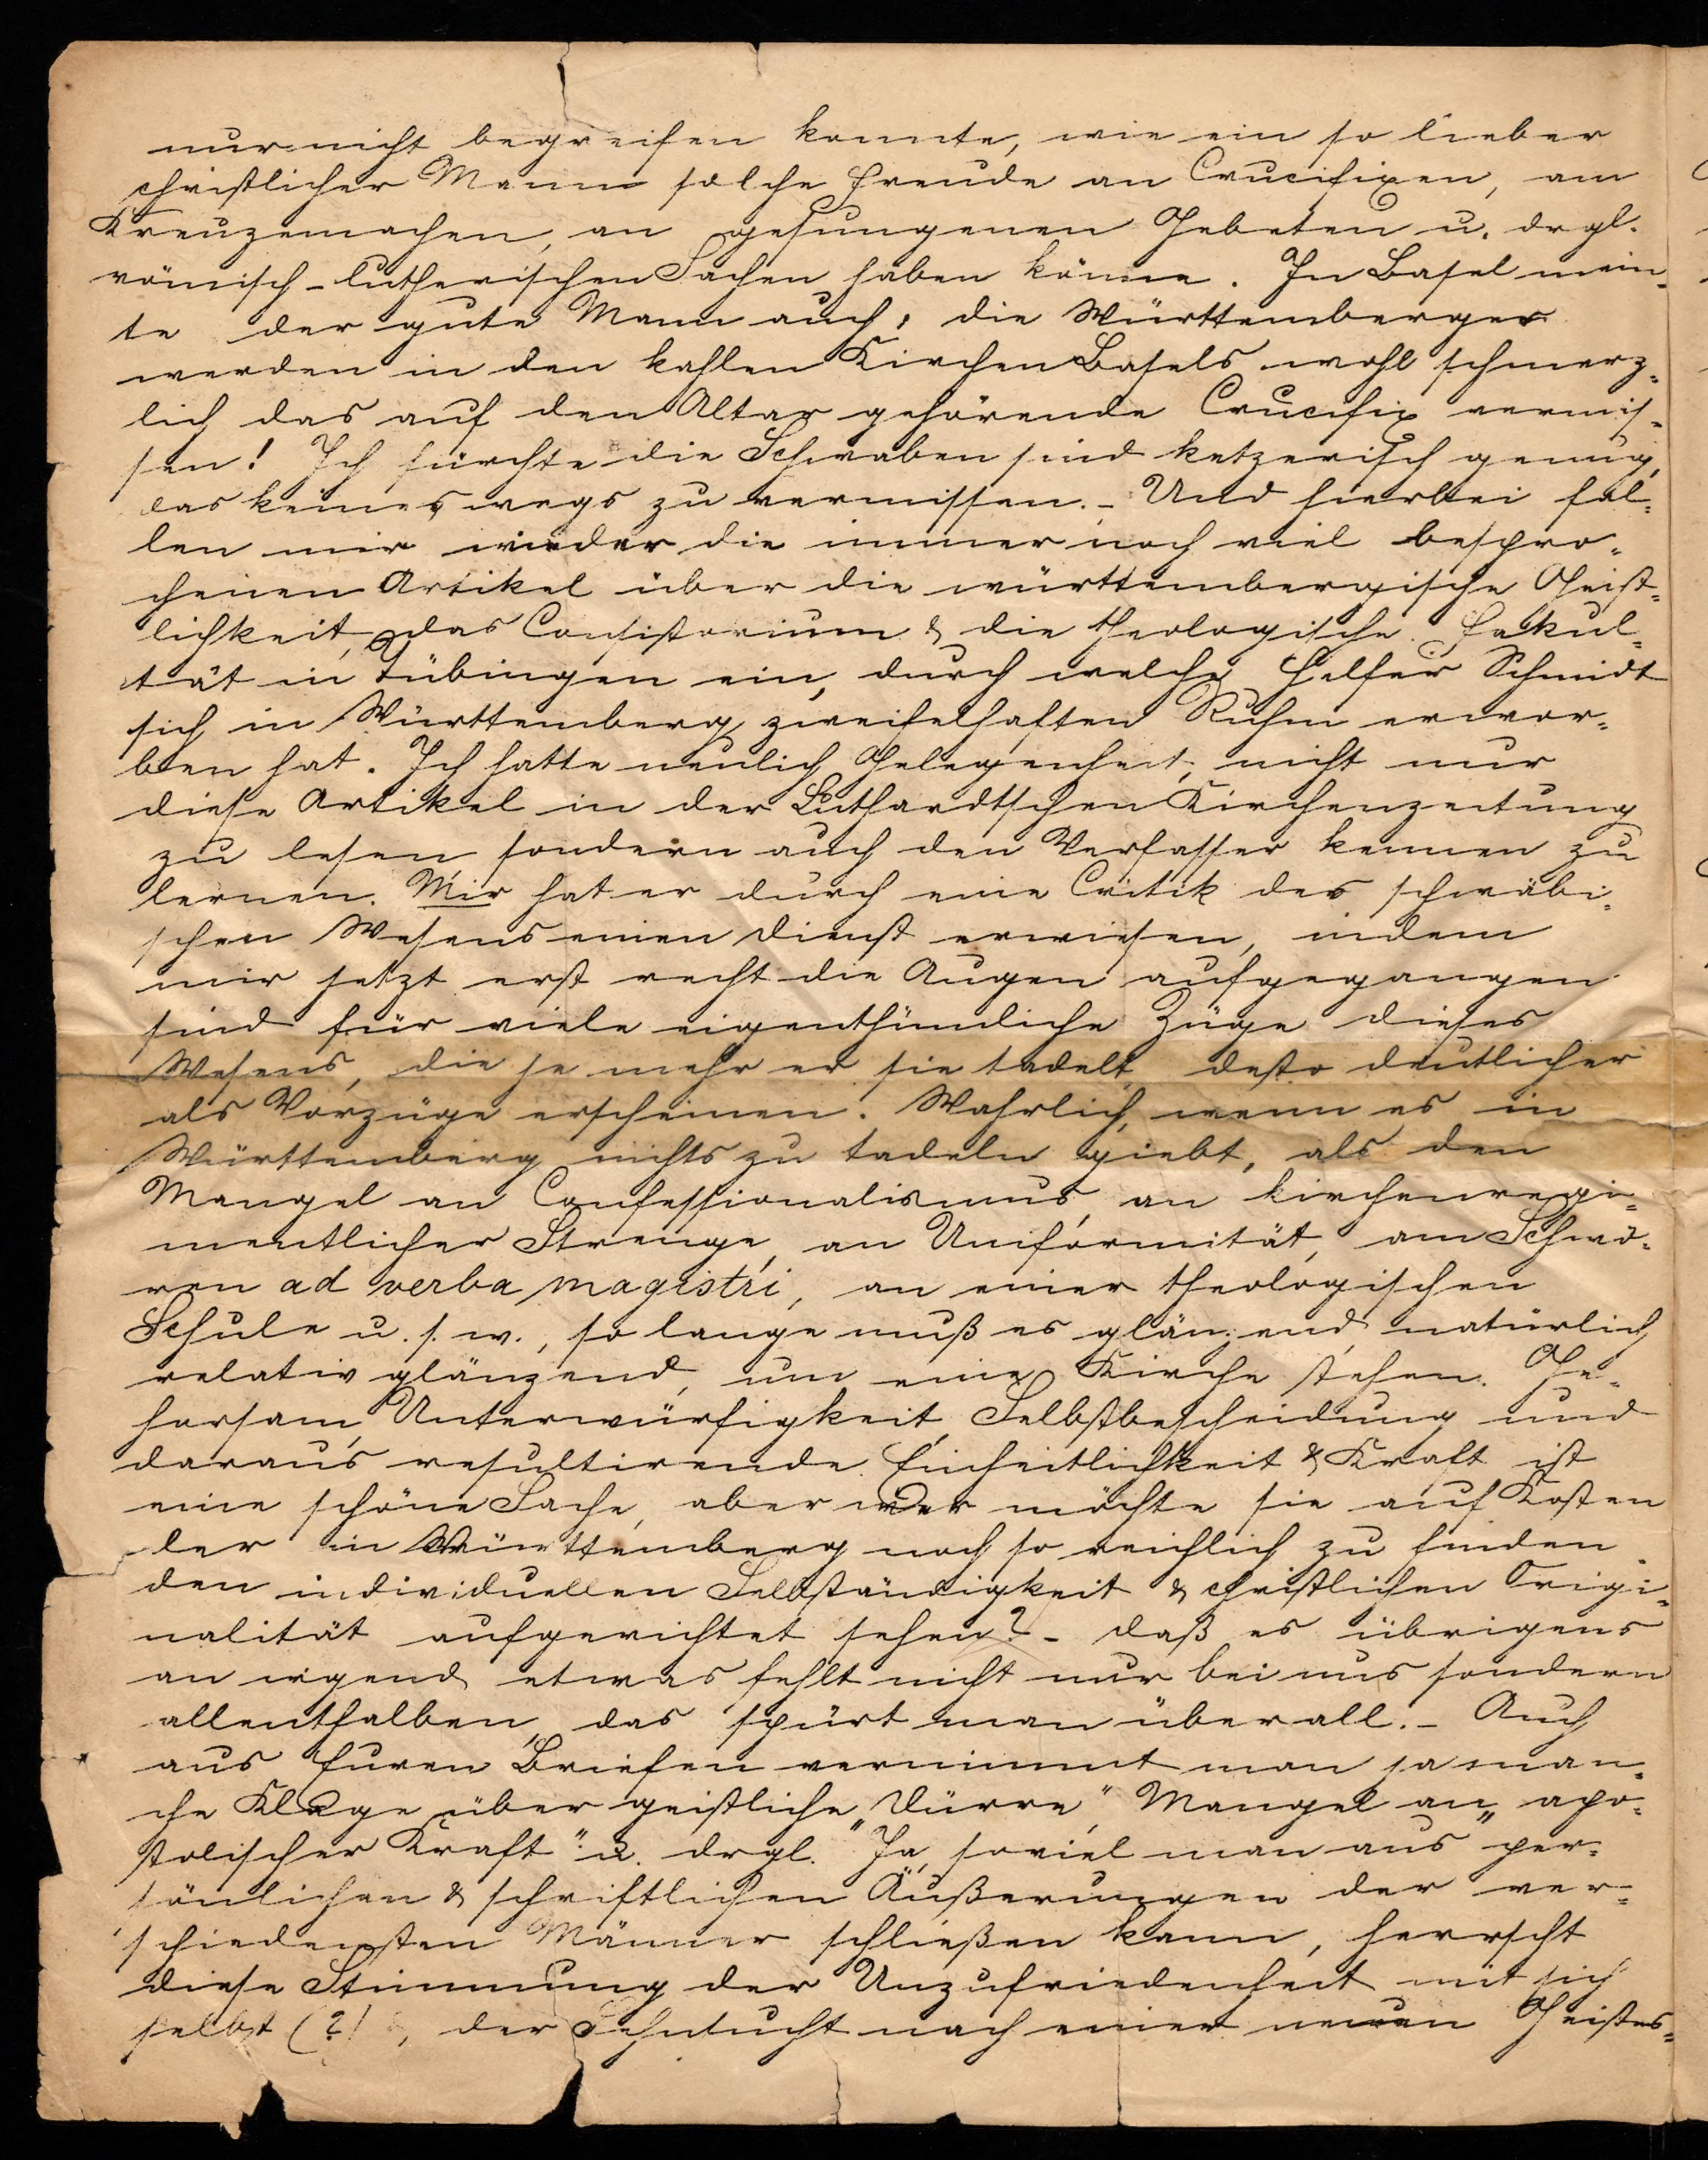 nur nicht begreifen konnte, wie ein so lieber
christlicher Mann solche Freude an Crucifixen, am
Kreuzemachen, an gesungenen Gebeten u. drgl.
römisch-lutherischen Sachen haben könne. In Basel mein-
te der gute Mann auch, die Württemberger
werden in den kahlen Kirchen Basels wohl schmerz-
lich das auf den Altar gehörende Crucifix vermis-
sen! Ich fürchte die Schwaben sind ketzerisch genug,
das keineswegs zu vermissen. - Und hierbei fal-
len mir wieder die immer noch viel bespro-
chenen Artikel über die württembergische Geist-
lichkeit, das Consistorium & die theologische Fakul-
tät in Tübingen ein, durch welche Helfer Schmidt
sich in Württemberg zweifelhaften Ruhm erwor-
ben hat. Ich hatte neulich Gelegenheit, nicht nur
diese Artikel in der Luthardtschen Kirchenzeitung
zu lesen sondern auch den Verfasser kennen zu
lernen. Mir hat er durch eine Critik des schwäbi-
schen Wesens einen Dienst erwiesen, indem
mir jetzt erst recht die Augen aufgegangen
sind für viele eigenthümliche Züge dieses
Wesens, die je mehr er sie tadelt desto deutlicher
als Vorzüge erscheinen. Wahrlich, wenn es in
Württemberg nichts zu tadeln giebt, als den
Mangel an Confessionalismus, an kirchenregi-
mentlicher Strenge, an Uniformität, am Schwö-
ren ad verba magistri, an einer theologischen
Schule u. s. w., so lange muß es glänzend, natürlich
relativ glänzend, um eine Kirche stehen. Ge-
horsam, Unterwürfigkeit, Selbstbescheidung und
daraus resultirende Einheitlichkeit & Kraft ist
eine schöne Sache, aber wer möchte sie auf Kosten
der in Württemberg noch so reichlich zu finden-
den individuellen Selbständigkeit & christlichen Origi-
nalität aufgerichtet sehen? - Daß es übrigens
an irgend etwas fehlt nicht nur bei uns sondern
allenthalben, das spürt man überall. - Auch
aus Euren Briefen vernimmt man ja man-
che Klage über geistliche „Dürre", Mangel an „apo-
stolischer Kraft" u. drgl. Ja, soviel man aus per-
sönlichen & schriftlichen Äußerungen der ver-
schiedensten Männer schließen kann, herrscht
diese Stimmung der Unzufriedenheit mit sich
selbst (?) &, der Sehnsucht nach einer neuen Geistes-